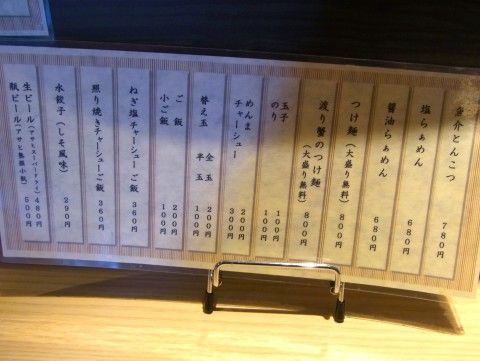 魚介とんこつ 780円
塩らぁめん 680円
醤油らぁめん 680円
つけ麺(大盛り無料) 800円
渡り蟹のつけ麺(大盛り無料) 800円
玉子 100円
のり 100円
めんま 200円
チャーシュー 300円
替え玉 全玉 200円
半玉 100円
ご飯 200円
小ご飯 100円
ねぎ塩チャーシューご飯 360円
照り焼きチャーシューご飯 360円
水餃子(しそ風味) 290円
生ビール(アサヒスーパードライ) 480円
瓶ビール(アサヒ熟撰小瓶) 500円